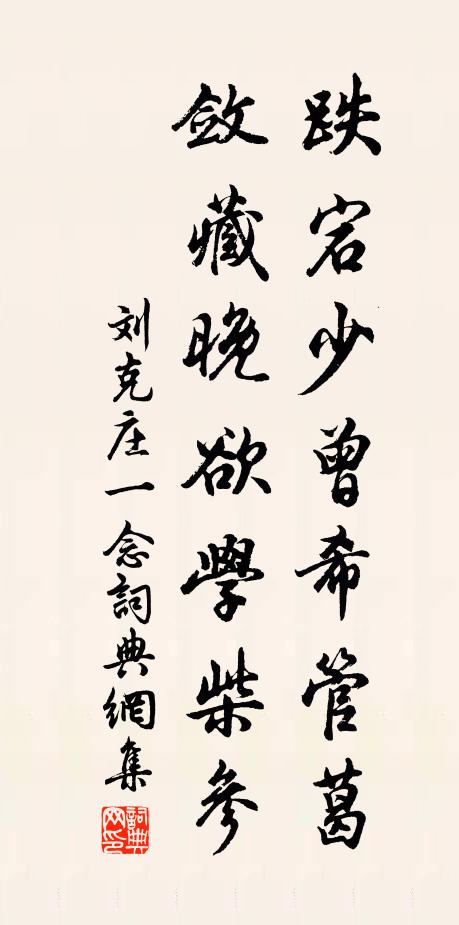 跌宕少曾希管葛
斂藏晚欲學柴參
刘克庄一念詞典網集
詞典網印